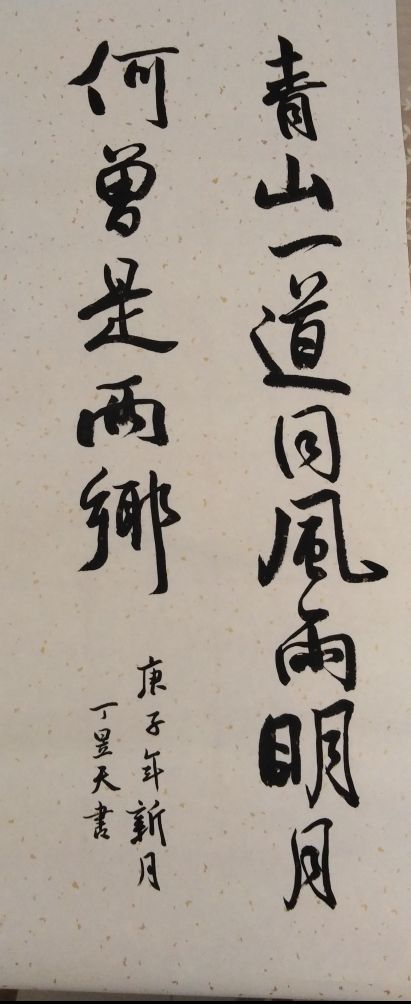 青山一道同風雨明月
何曾是兩鄉
庚子年新月
丁昱天書